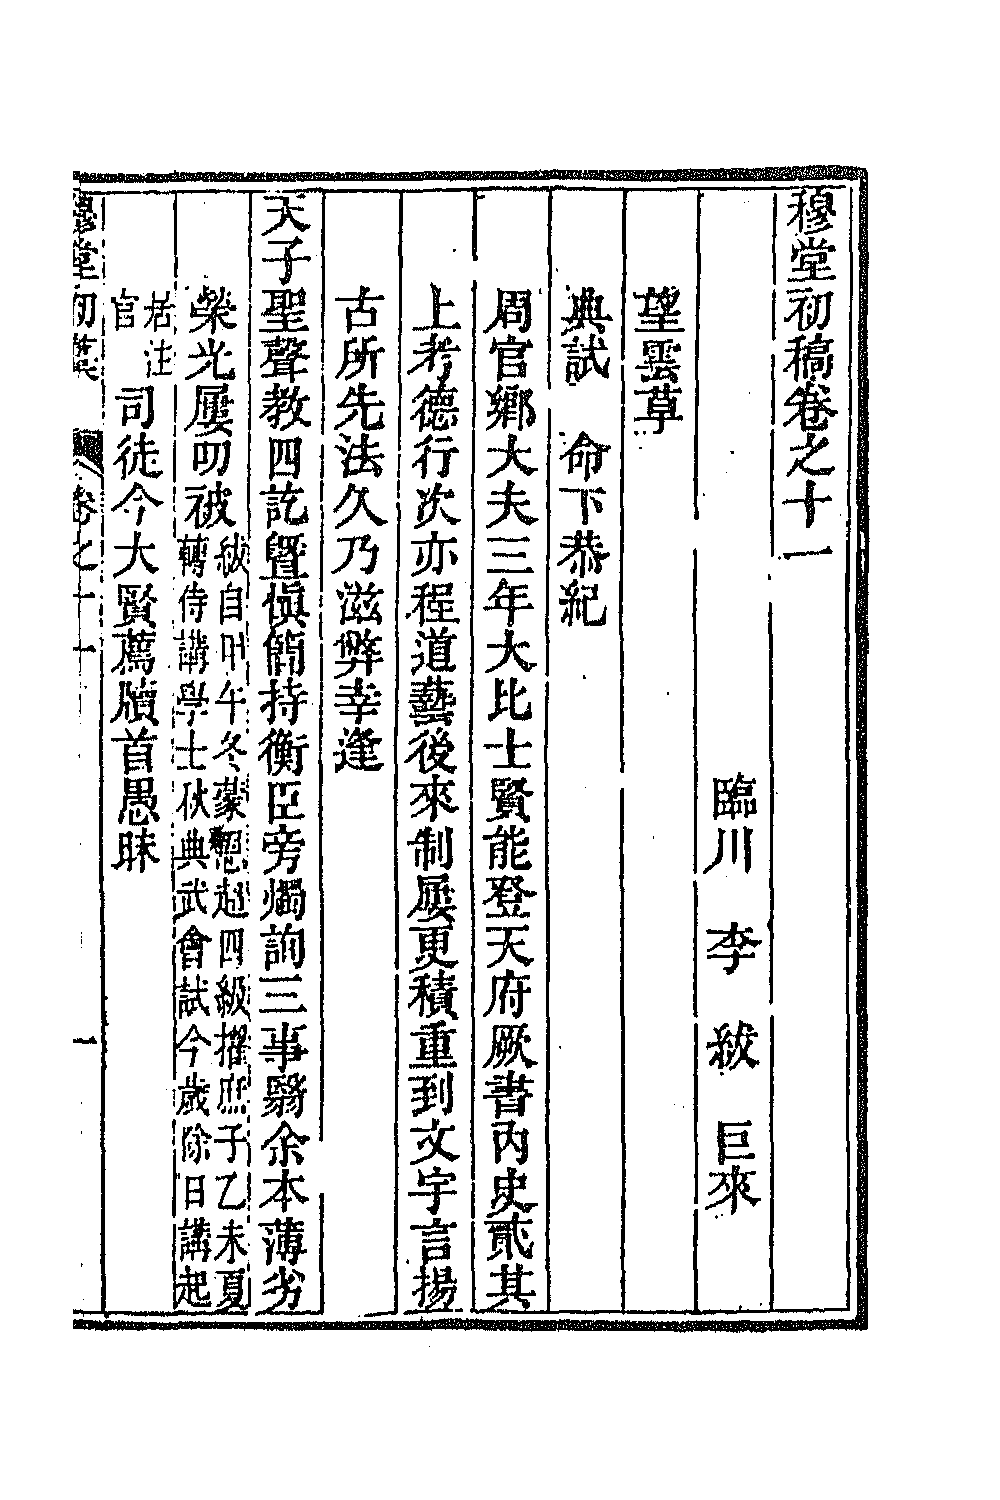 穆堂初稿卷之十一
臨川　李　紱　巨來
望雲草
典試　命下恭紀
周官鄉大夫三年大比士賢能登天府厥書內史貳其
上考德行次亦程道藝後來制屢更積重到文字言揚
古所先法久乃滋弊幸逢
天子聖聲教四訖曁慎簡持衡臣旁燭詢三事翳余本薄劣
榮光屢叨被
紱自甲午冬蒙恩超四級擢庶子乙未夏
轉侍講學士秋典武會試今歲除日講起
居注
官
司徒今大賢薦牘首愚昧
穆堂初稿　卷之十一　一